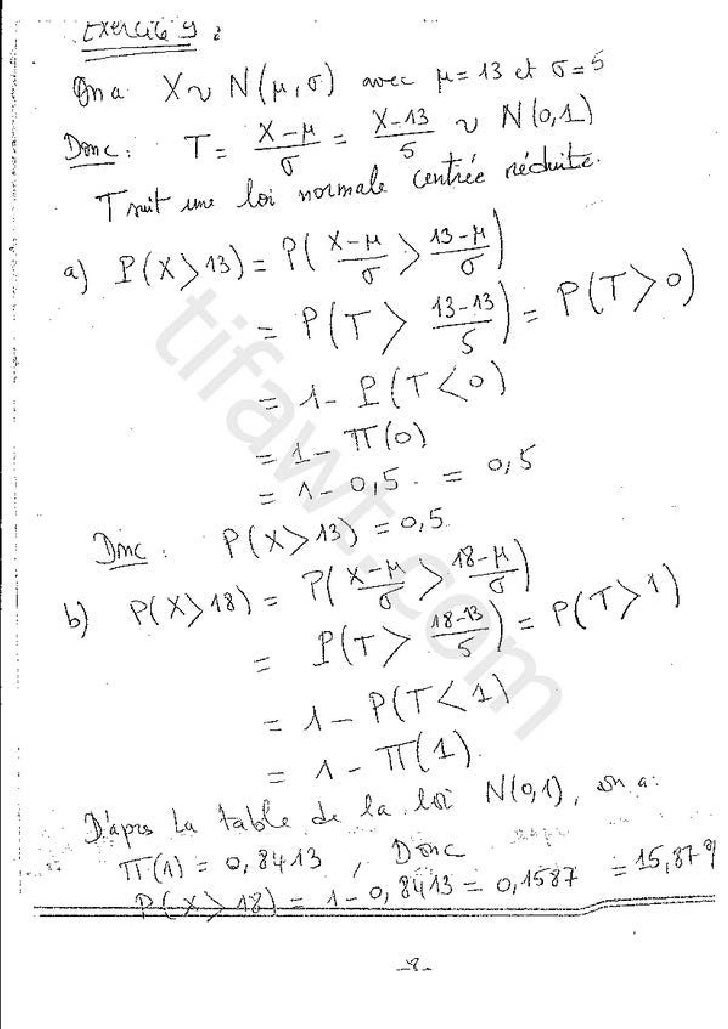 Exercice 9 :
On a X ~ N(μ, σ) avec μ = 13 et σ = 5
Donc : T = (X-μ)/σ = (X-13)/5 ~ N(0,1)
T suit une loi normale centrée réduite.
a) P(X > 13) = P((X-μ)/σ > (13-μ)/σ)
= P(T > (13-13)/5) = P(T > 0)
= 1 - P(T < 0)
= 1 - π(0)
= 1 - 0,5 = 0,5
Donc : P(X > 13) = 0,5
b) P(X > 18) = P((X-μ)/σ > (18-μ)/σ)
= P(T > (18-13)/5) = P(T > 1)
= 1 - P(T < 1)
= 1 - π(1)
D'après la table de la loi N(0,1), on a :
π(1) = 0,8413 , Donc
P(X > 18) = 1 - 0,8413 = 0,1587 = 15,87%
-8-
tifawt.com